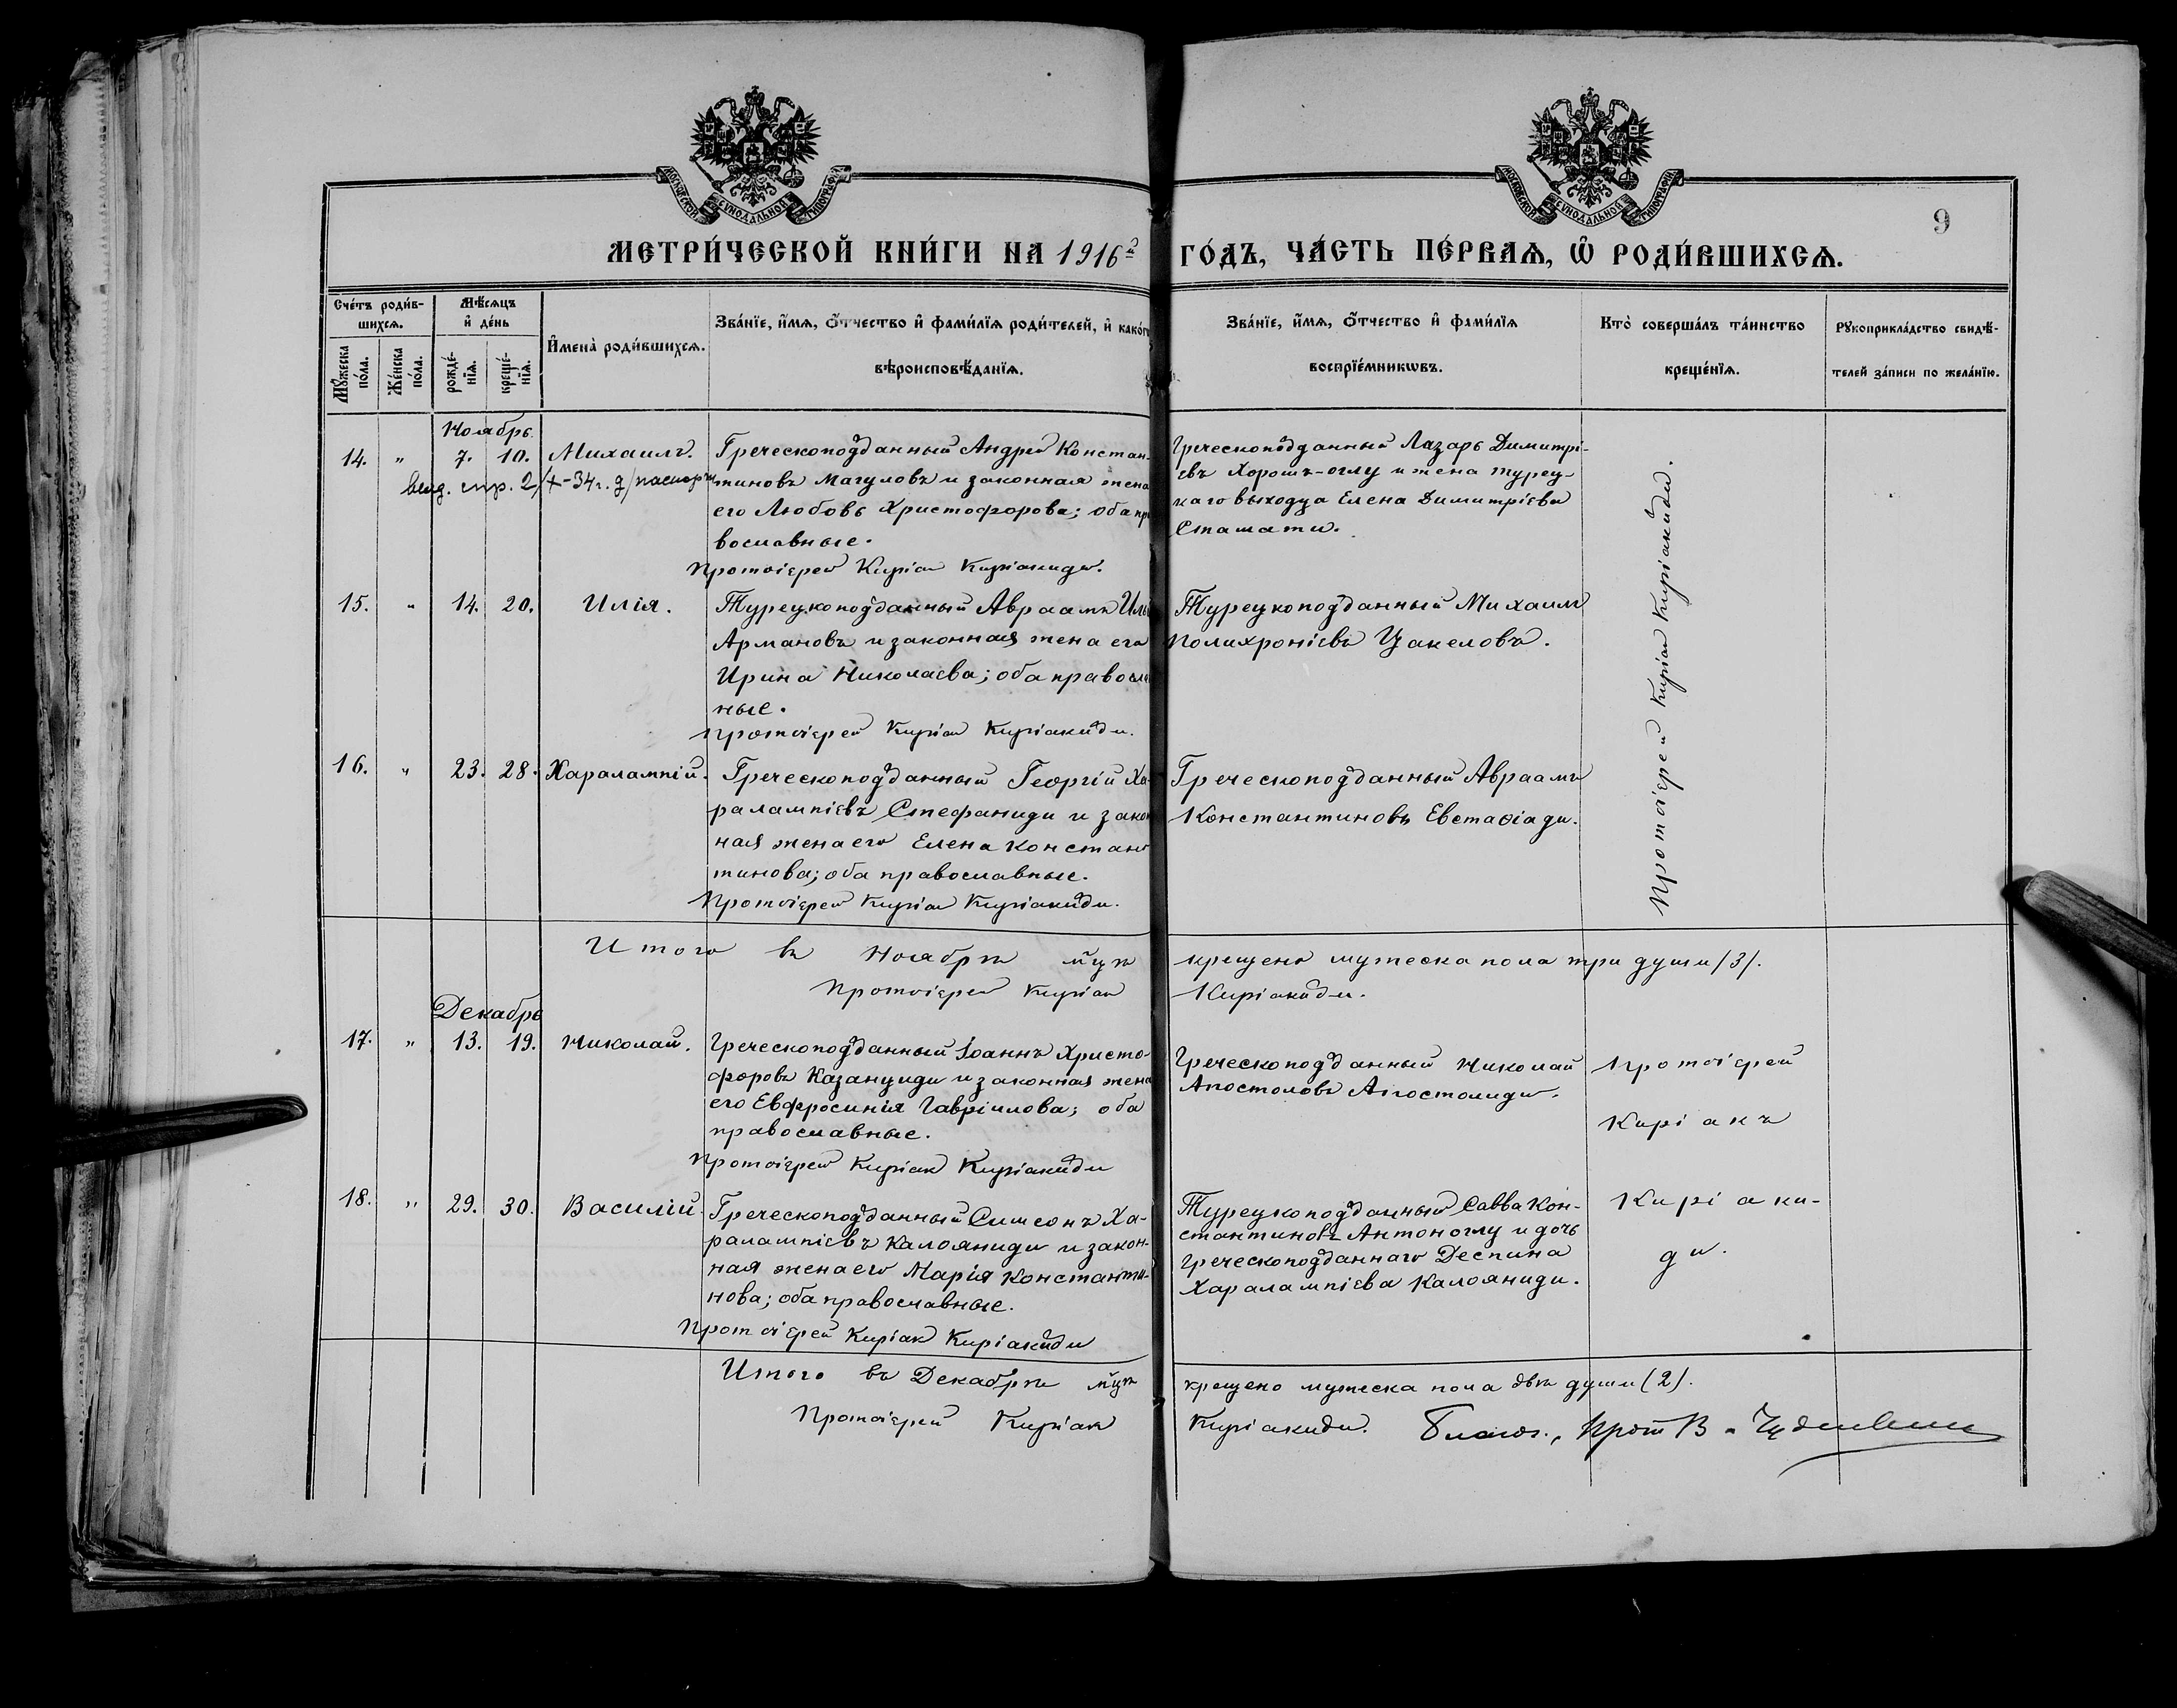 МОСКОВСКОЙ СѴНОДАЛЬНОЙ ТИПОГРАФІИ
МОСКОВСКОЙ СѴНОДАЛЬНОЙ ТИПОГРАФІИ
9
МЕТРИ́ЧЕСКОЙ КНИ́ГИ НА 1916й ГО́ДЪ, ЧА́СТЬ ПЕ́РВАѦ, Ѡ҆ РОДИ́ВШИХСѦ.
Сче́тъ роди́в-
шихсѧ.
Мꙋ́жеска по́ла.
Же́нска по́ла.
Мѣ́сѧцъ
и҆ де́нь
рожде́-
нїѧ.
креще́-
нїѧ.
И҆мена̀ роди́вшихсѧ.
Зва́нїе, и҆́мѧ, ѻ҆́тчество и҆ фами́лїѧ роди́телей, и҆ како́гѡ
вѣроисповѣ́данїѧ.
Зва́нїе, и҆́мѧ, ѻ҆́тчество и҆ фами́лїѧ
воспрїе́мникѡвъ.
Кто̀ соверша́лъ та́инство
креще́нїѧ.
Рꙋкоприкла́дство свидѣ́-
телей за́писи по жела́нїю.
Ноябрь.
14. „ 7. 10. Михаилъ.
Греческоподданный Андрей Констан-
тиновъ Магуловъ и законная жена
его Любовь Христофорова; оба пра
вославные.
Протоіерей Киріак Киріакиди.
выд. спр. 2/X-34 г. д/паспорт
Греческоподданный Лазарь Димитрі-
евъ Хорошъ-оглу и жена турец-
каго выходца Елена Димитріева
Стамати.
Протоіерей Киріак Киріакиди.
15. „ 14. 20. Илія.
Турецкоподданный Авраамъ Ильи
Армановъ и законная жена его
Ирина Николаева; оба правосла
ные.
Протоіерей Киріак Киріакиди.
Турецкоподданный Михаил
Полихроніевъ Цакеловъ.
16. „ 23. 28. Харалампій.
Греческоподданный Георгій Ха-
ралампіевъ Стефаниди и закон
ная жена его Елена Констан
тинова; оба православные.
Протоіерей Киріак Киріакиди.
Греческоподданный Авраамъ
Константиновъ Евстаѳіади.
Итого въ Ноябрѣ м-цѣ крещено мужеска пола три души /3/.
Протоіерей Киріак Киріакиди.
Декабрь
17. „ 13. 19. Николай.
Греческоподданный Іоаннъ Христо-
форовъ Казанциди и законная жена
его Евфросинія Гавріилова; оба
православные.
Протоіерей Киріак Киріакиди
Греческоподданный Николай
Апостоловъ Апостолиди.
Протоіерей
Киріакъ
Киріаки-
ди.
18. „ 29. 30. Василій.
Греческоподданный Симеонъ Ха-
ралампіевъ Калояниди и закон-
ная жена его Марія Константи-
нова; оба православные.
Протоіерей Киріак Киріакиди
Турецкоподданный Савва Кон-
стантиновъ Антоноглу и дочь
греческоподданнаго Деспина
Харалампіева Калояниди.
Итого въ Декабрѣ м-цѣ крещено мужеска пола двѣ души (2).
Протоіерей Киріак Киріакиди. Благоч., Прот В.